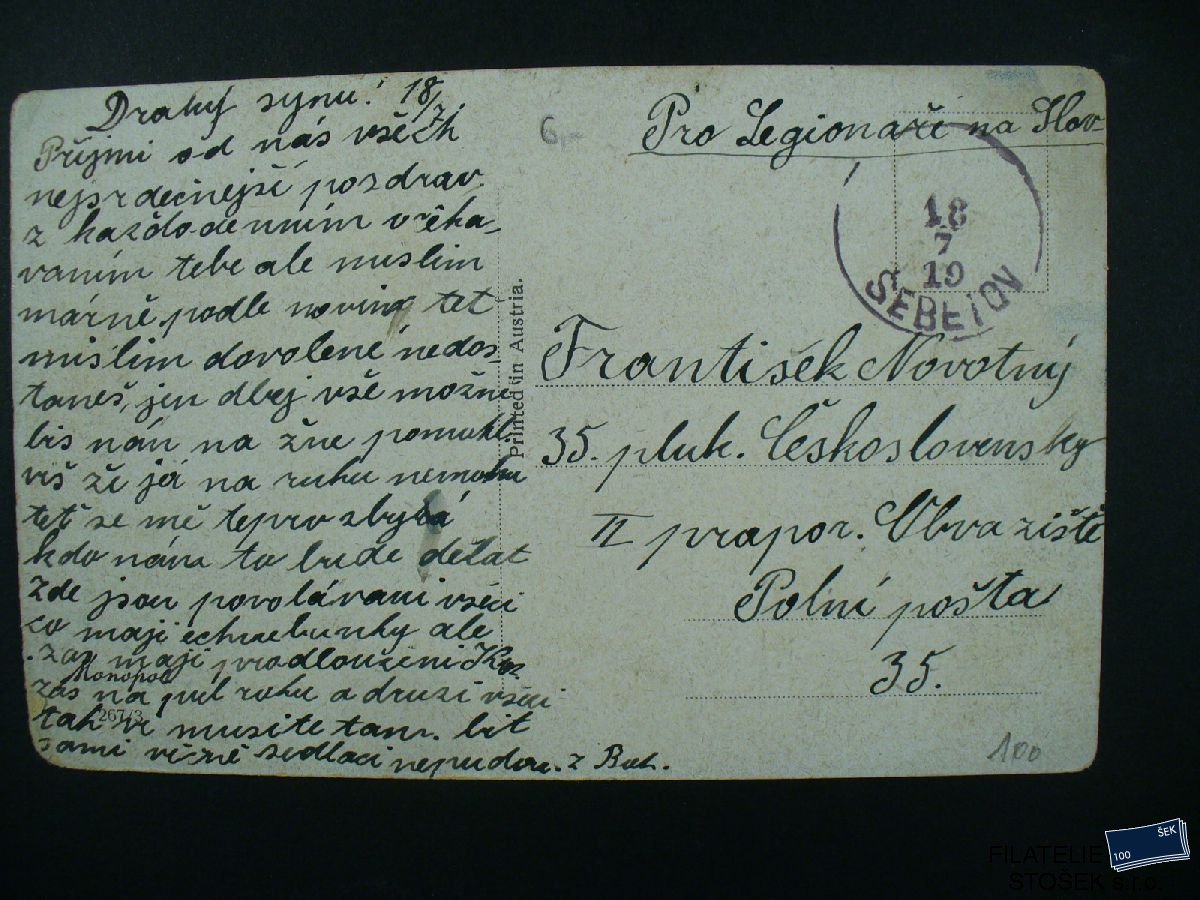 Drahý synu! 18/7
Příjmi od nás všech
nejsrdečnejší pozdrav
z každodenním očeka
vaním tebe ale mislim
márně podle novin teť
mislim dovolené nedos
taneš, jen dbej vše možne
bis nám na žne pomohl.
viš ži já na ruku nemohu
teť se mě teprv zbyla
kdo nám to bude dělat
Zde jsou povolávani všeci
co maji ale
zas maji prodlouženi
zas na pul roku a druzí všeci
tak vi musite tam bit
sami sedlaci nepudou. z Boh.
Monopol
267/3
Printed in Austria.
6,-
Pro Legionaře na Slov-
18
7
19
ŠEBETOV
František Novotný
35. pluk. Československy
II prapor. Obvaziště
Polní pošta
35.
100
ŠEK
100
FILATELIE
STOŠEK s.r.o.